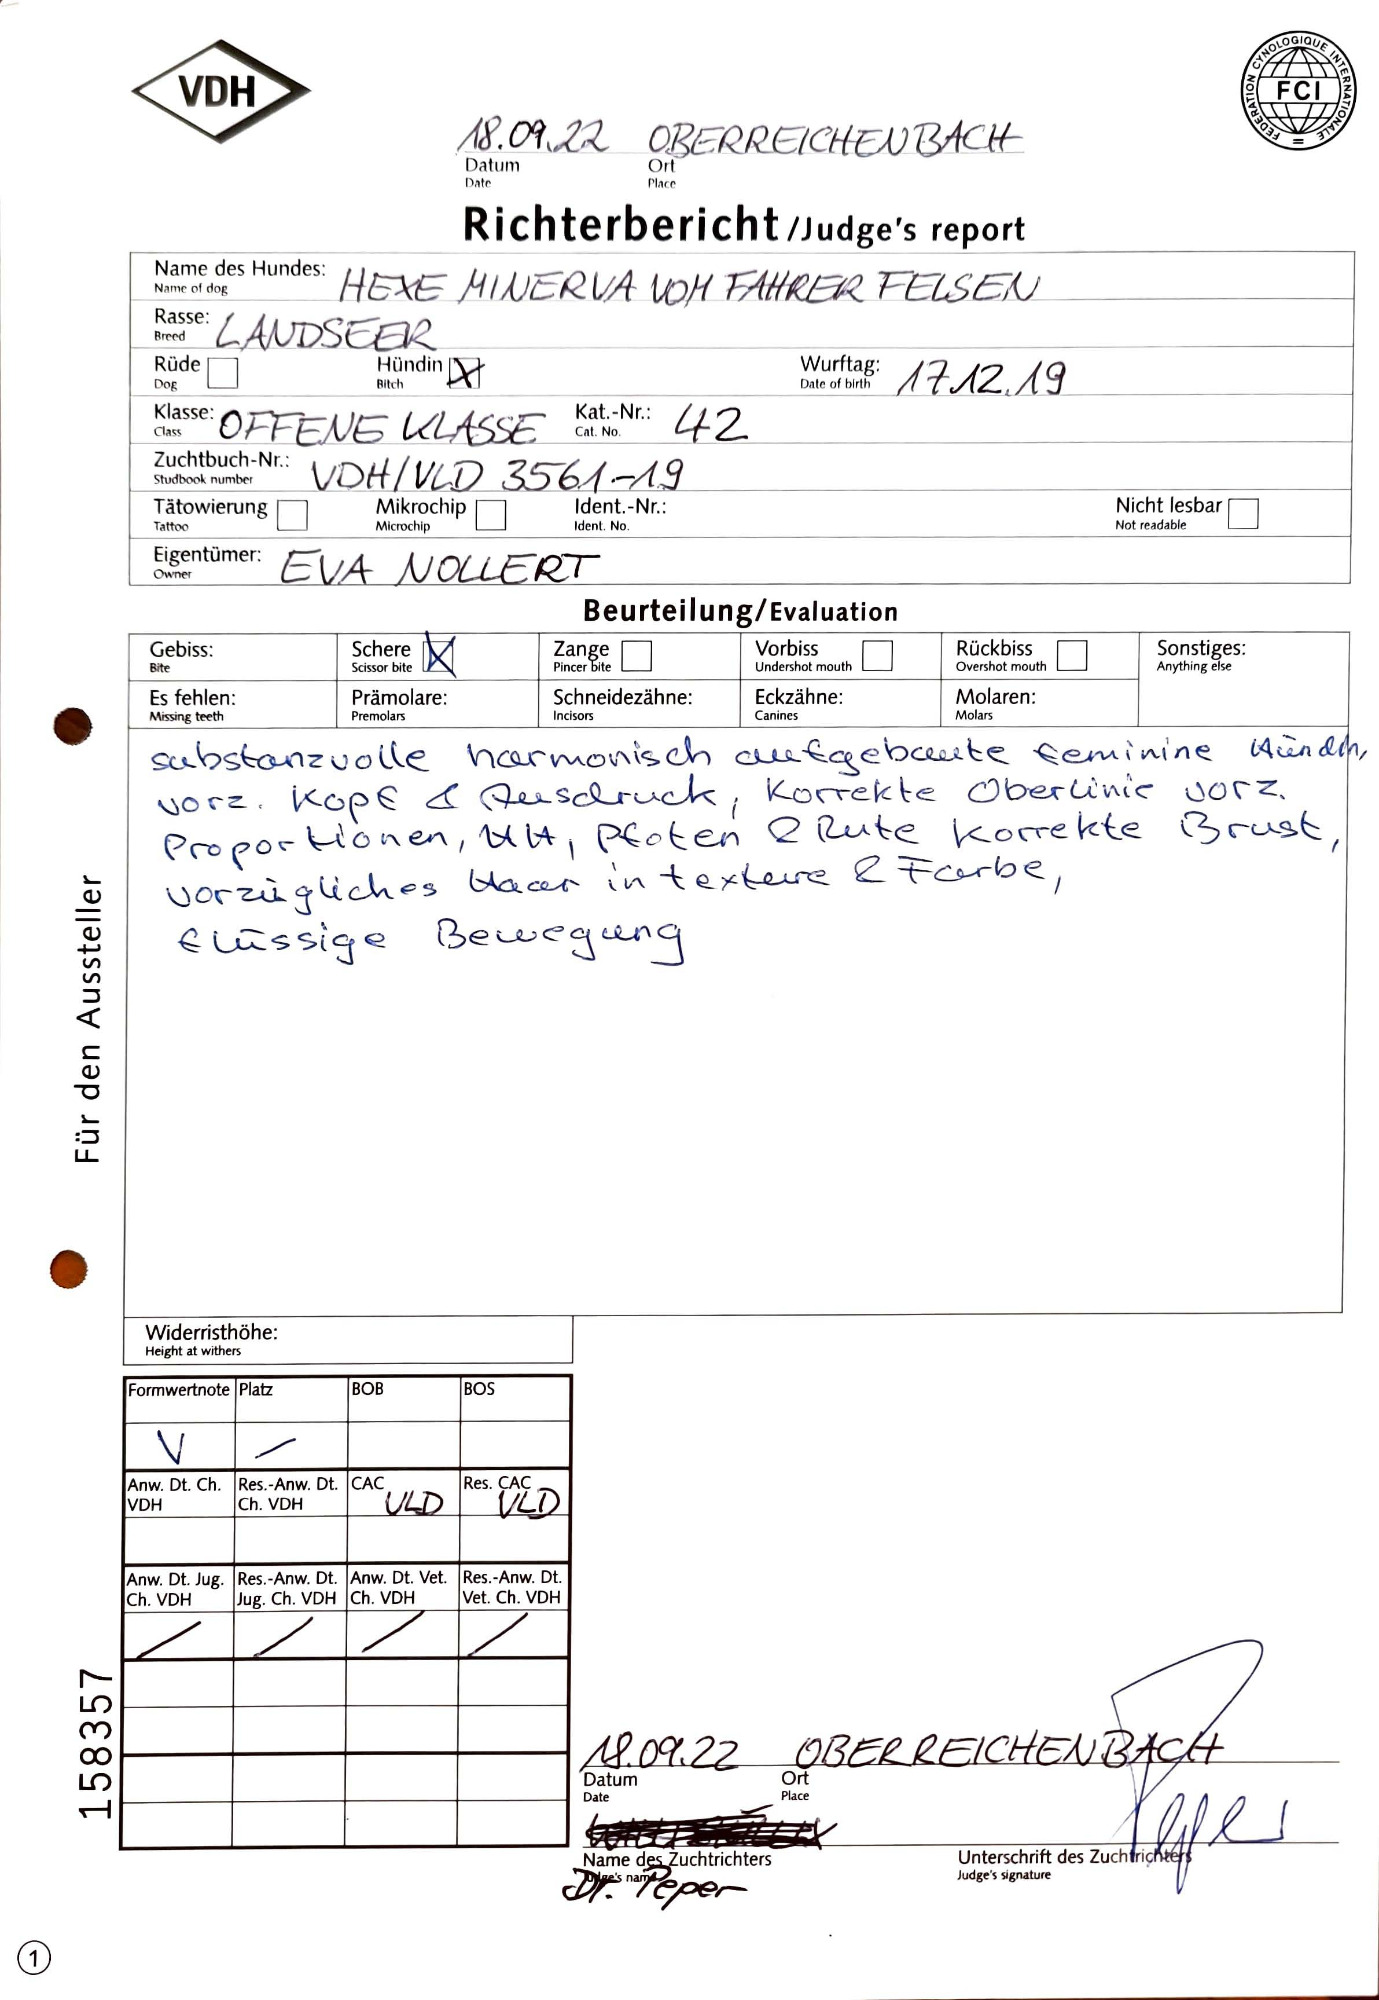 VDH
FEDERATION CYNOLOGIQUE INTERNATIONALE
FCI
18.09.22 OBERREICHENBACH
Datum Ort
Date Place
Richterbericht/Judge's report
Name des Hundes: HEXE MINERVA VOM FAHRER FELSEN
Name of dog
Rasse: LANDSEER
Breed
Rüde Hündin X Wurftag: 17.12.19
Dog Bitch Date of birth
Klasse: OFFENE KLASSE Kat.-Nr.: 42
Class Cat. No.
Zuchtbuch-Nr.: VDH/VLD 3561-19
Studbook number
Tätowierung Mikrochip Ident.-Nr.: Nicht lesbar
Tattoo Microchip Ident. No. Not readable
Eigentümer: EVA NOLLERT
Owner
Beurteilung/Evaluation
Gebiss: Schere X Zange Vorbiss Rückbiss Sonstiges:
Bite Scissor bite Pincer bite Undershot mouth Overshot mouth Anything else
Es fehlen: Prämolare: Schneidezähne: Eckzähne: Molaren:
Missing teeth Premolars Incisors Canines Molars
substanzvolle harmonisch aufgebaute feminine Hündin,
vorz. Kopf & Ausdruck, korrekte Oberlinie vorz.
Proportionen, HH, Pfoten & Rute korrekte Brust,
vorzügliches Haar in textur & Farbe,
flüssige Bewegung
Für den Aussteller
Widerristhöhe:
Height at withers
Formwertnote Platz BOB BOS
V –
Anw. Dt. Ch. VDH Res.-Anw. Dt. Ch. VDH CAC VLD Res. CAC VLD
Anw. Dt. Jug. Ch. VDH Res.-Anw. Dt. Jug. Ch. VDH Anw. Dt. Vet. Ch. VDH Res.-Anw. Dt. Vet. Ch. VDH
/ / / /
158357
18.09.22 OBERREICHENBACH
Datum Ort
Date Place
Name des Zuchtrichters Unterschrift des Zuchtrichters
Judge's name Judge's signature
Dr. Peper
Peper
1